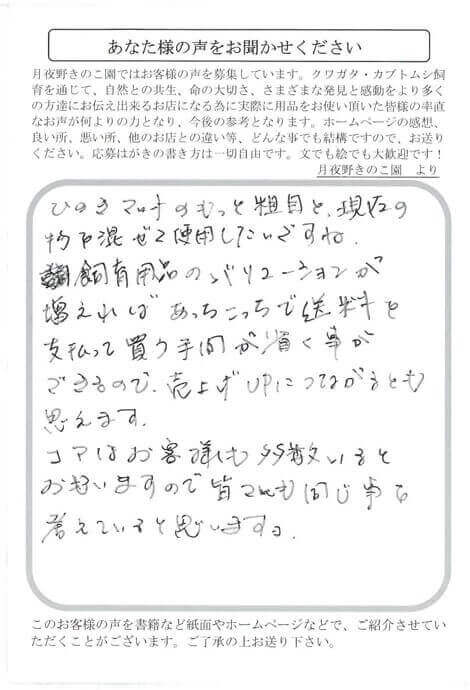 あなた様の声をお聞かせください
月夜野きのこ園ではお客様の声を募集しています。クワガタ・カブトムシ飼
育を通じて、自然との共生、命の大切さ、さまざまな発見と感動をより多く
の方達にお伝え出来るお店になる為に実際に用品をお使い頂いた皆様の率直
なお声が何よりの力となり、今後の参考となります。ホームページの感想、
良い所、悪い所、他のお店との違い等、どんな事でも結構ですので、お送り
ください。応募はがきの書き方は一切自由です。文でも絵でも大歓迎です!
月夜野きのこ園 より
ひのきマットのもっと粗目と、現在の
物を混ぜて使用したいですね。
飼育用品のバリエーションが
増えればあっちこっちで送料を
支払って買う手間が省く事が
できるので、売上げUPにつながるとも
思えます。
コアなお客様も多数いると
お思いますので皆さんも同じ事を
考えていると思いますよ。
このお客様の声を書籍など紙面やホームページなどで、ご紹介させてい
ただくことがございます。ご了承の上お送り下さい。